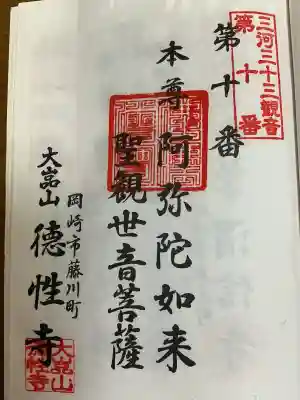 三河三十三観音
第十番
第十番
本尊阿弥陀如来
聖観世音菩薩
岡崎市藤川町
大嵓山
德性寺
大嵓山
德性寺